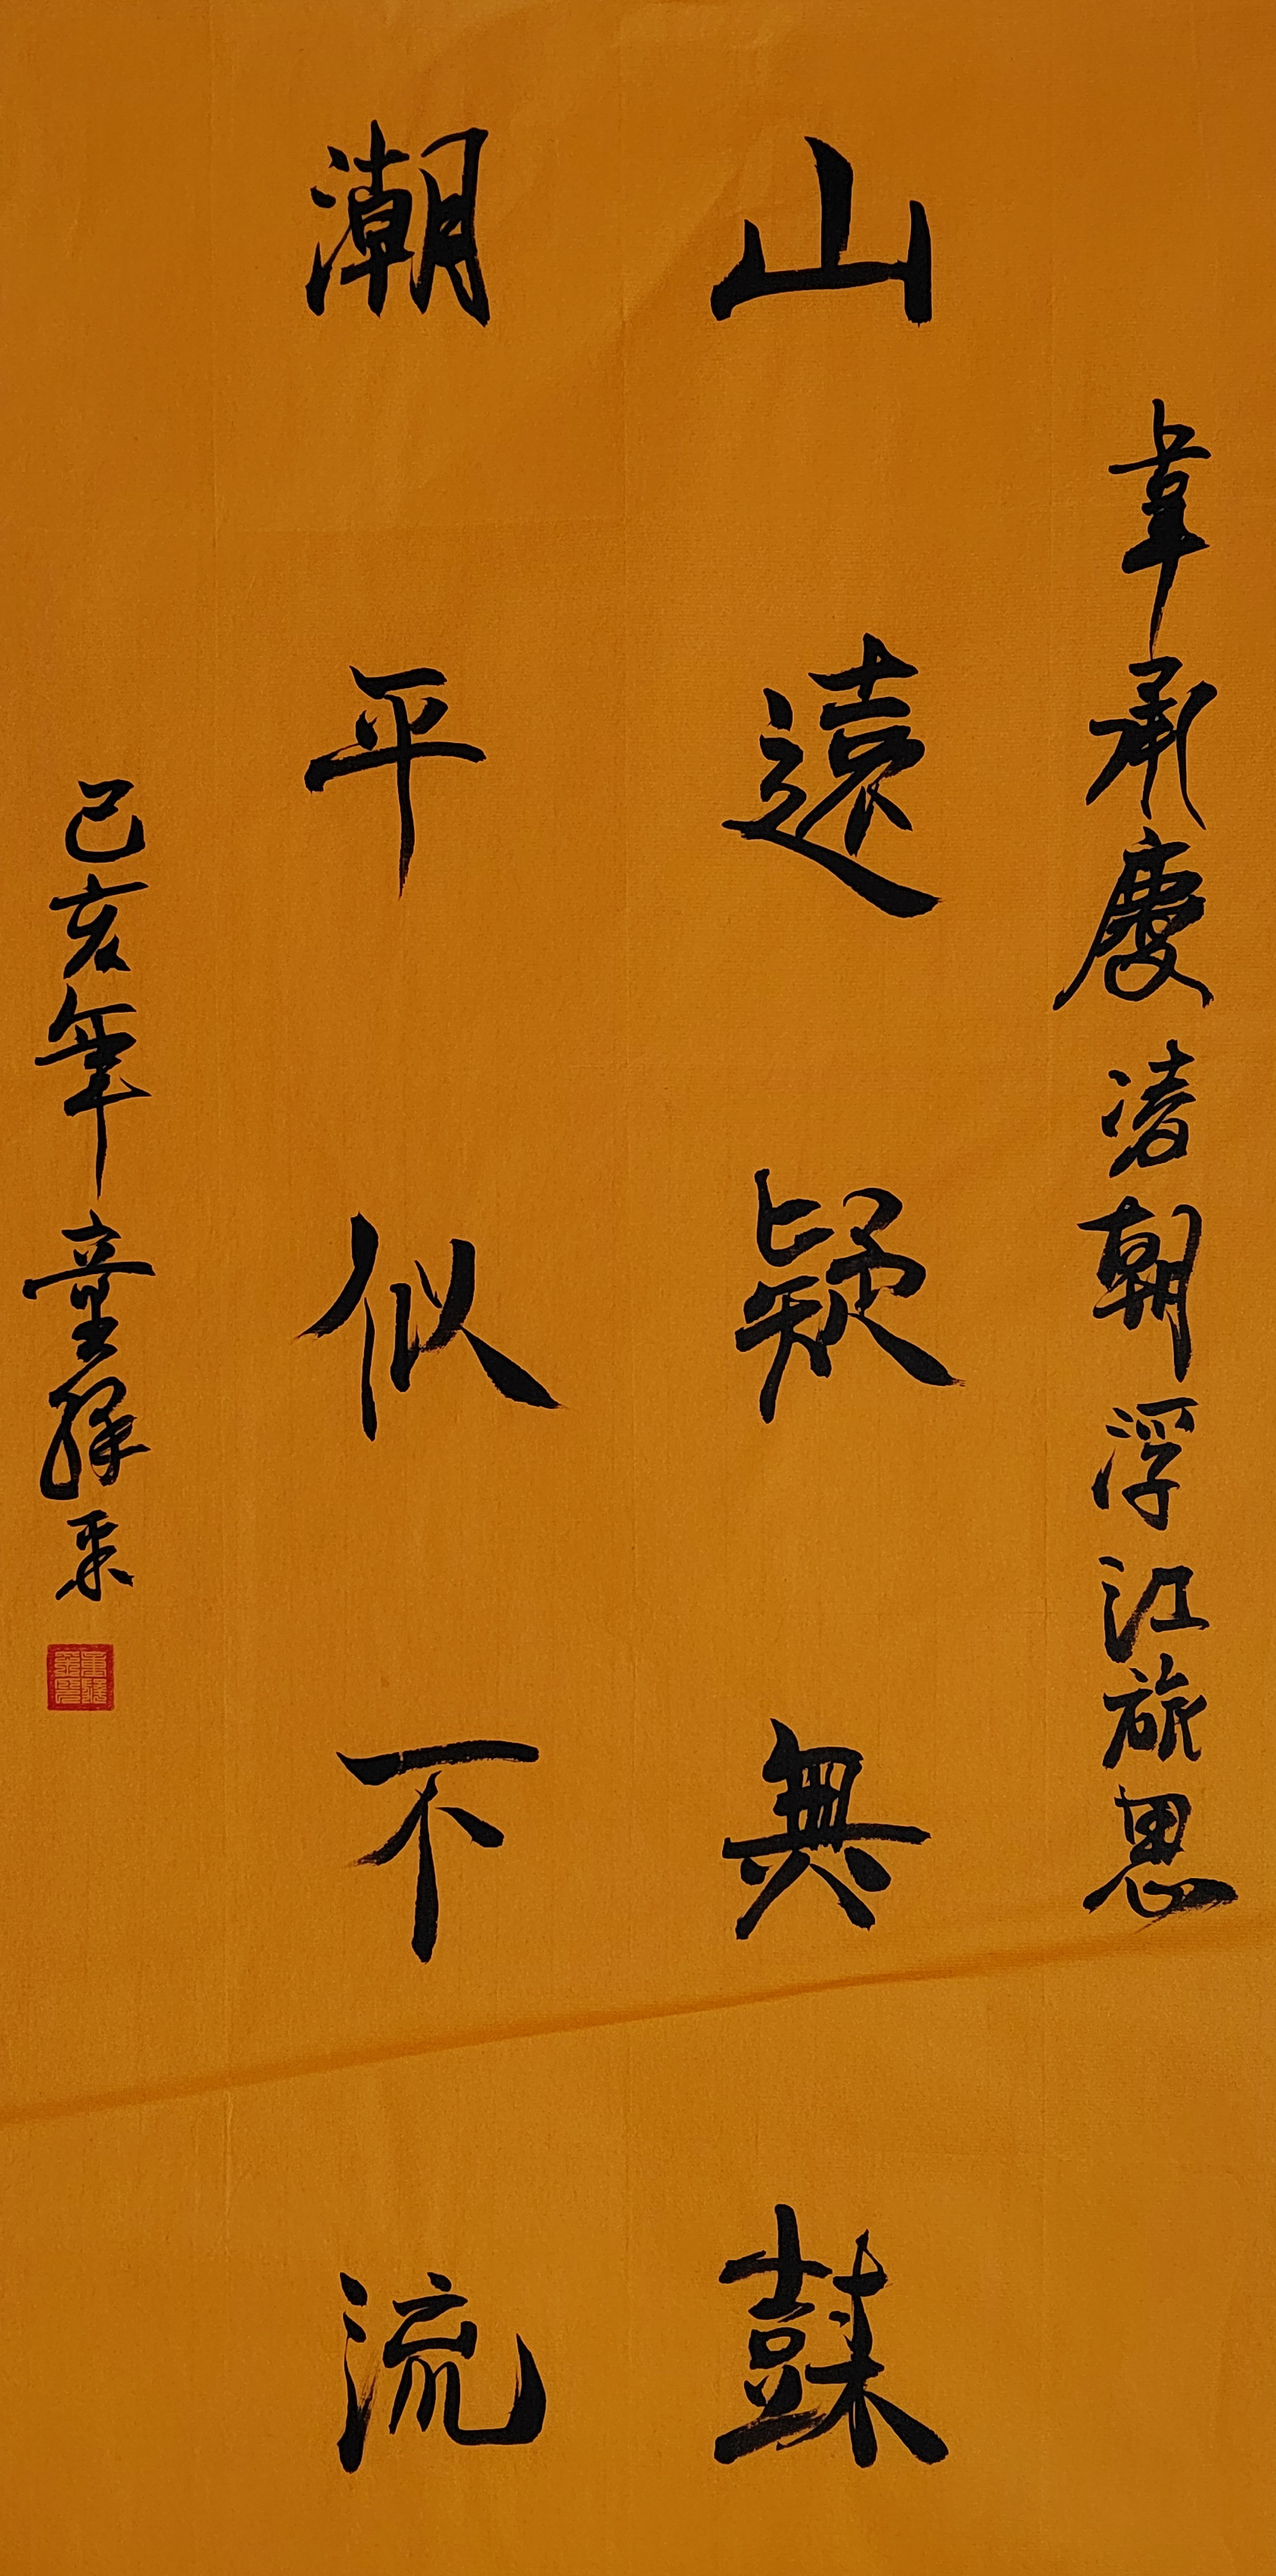 韋承慶 凌朝浮江旅思
山遠疑無樹
潮平似不流
己亥年 童